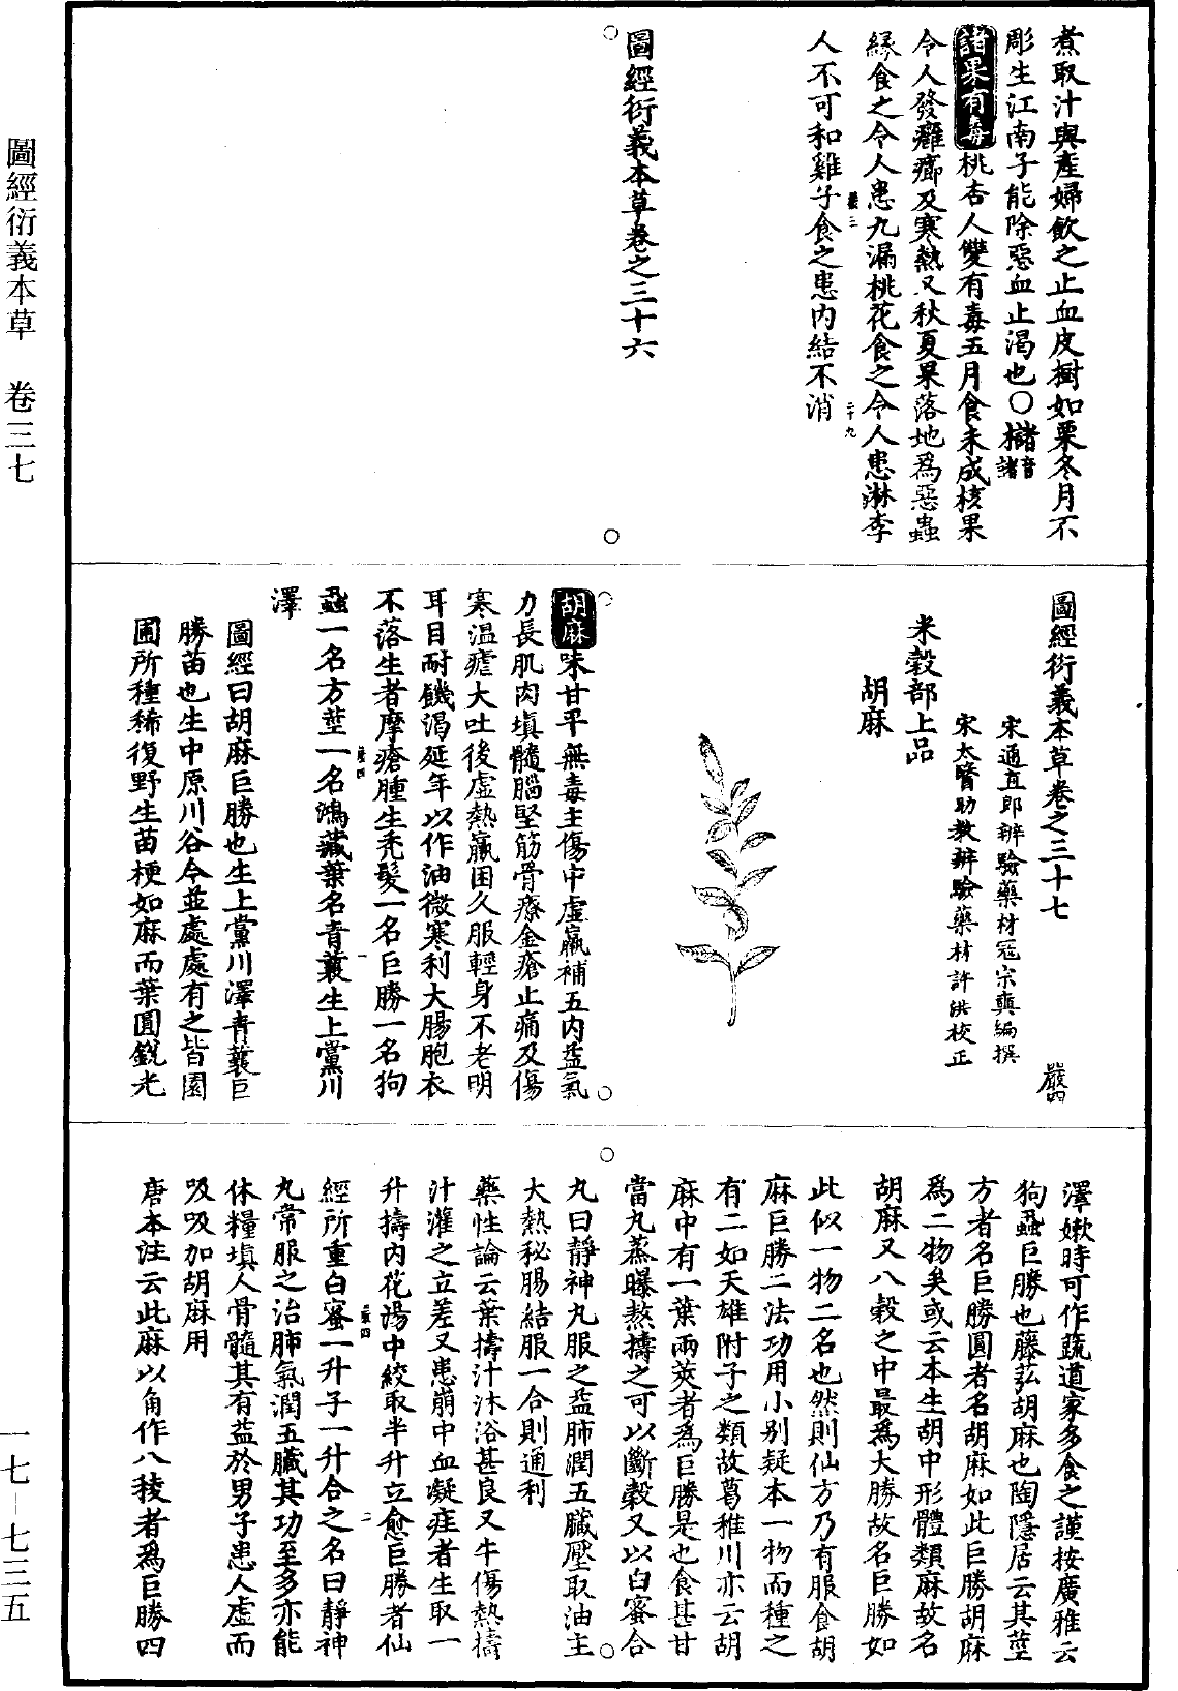 煮取汁與產婦飲之止血皮樹如栗冬月不
彫生江南子能除惡血止渴也○櫧音諸
諸果有毒桃杏人雙有毒五月食未成核果
令人發癰癤及寒熱又秋夏果落地為惡蟲
緣食之令人患九漏桃花食之令人患淋李
人不可和雞子食之患內結不消
嚴三
二十九
圖經衍義本草卷之三十六
圖經衍義本草卷之三十七
嚴四
宋通直郎辨驗藥材寇宗奭編撰
宋太醫助教辨驗藥材許洪校正
米穀部上品
胡麻
胡麻味甘平無毒主傷中虛羸補五內益氣
力長肌肉填髓腦堅筋骨療金瘡止痛及傷
寒溫瘧大吐後虛熱羸困久服輕身不老明
耳目耐饑渴延年以作油微寒利大腸胞衣
不落生者摩瘡腫生禿髮一名巨勝一名狗
嚴四
一
蝨一名方莖一名鴻藏葉名青蘘生上黨川
澤
圖經曰胡麻巨勝也生上黨川澤青蘘巨
勝苗也生中原川谷今並處處有之皆園
圃所種稀復野生苗梗如麻而葉圓銳光
澤嫩時可作蔬道家多食之謹按廣雅云
狗蝨巨勝也藤弘胡麻也陶隱居云其莖
方者名巨勝圓者名胡麻如此巨勝胡麻
為二物矣或云本生胡中形體類麻故名
胡麻又八穀之中最為大勝故名巨勝如
此似一物二名也然則仙方乃有服食胡
麻巨勝二法功用小別疑本一物而種之
有二如天雄附子之類故葛稚川亦云胡
麻中有一葉兩莢者為巨勝是也食甚甘
當九蒸曝熬擣之可以斷穀又以白蜜合
丸曰靜神丸服之益肺潤五臟壓取油主
大熱秘腸結服一合則通利
藥性論云葉擣汁沐浴甚良又牛傷熱擣
汁灌之立差又患崩中血凝疰者生取一
升擣內花湯中絞取半升立愈巨勝者仙
嚴四
二
經所重白蜜一升子一升合之名曰靜神
丸常服之治肺氣潤五臟其功至多亦能
休糧填人骨髓其有益於男子患人虛而
吸吸加胡麻用
唐本注云此麻以角作八稜者為巨勝四
圖經衍義本草　卷三七
一七—七三五